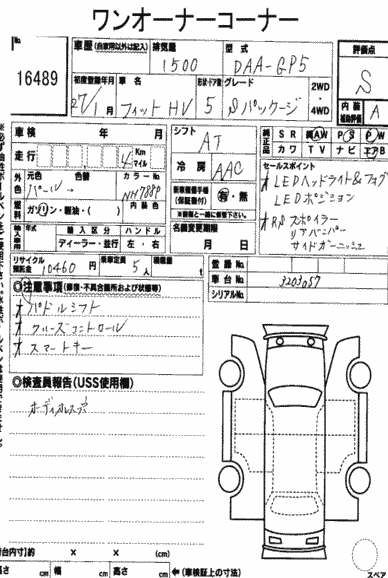 ワンオーナーコーナー
No. 16489
車歴 (自家用以外は記入) 排気量 1500 型式 DAA-GP5
評価点 S
初度登録年月 27/1月 車名 フィットHV 形状・ドア数 5 グレード Sパッケージ 2WD・4WD
内装補助評価 A
車検 年 月
シフト AT
純正品 SR AW PS PW
カワ TV ナビ エアB
走行 4 Km マイル
冷房 AAC
外色 元色 パール 色替 カラーNo NH788P
燃料 ガソリン・軽油・( ) 内装色
新車時保証書 (保証書付) 有・無
※書類と一緒に御提示下さい。
セールスポイント
LEDヘッドライト&フォグ
LEDポジション
RS スポイラー
リアバンパー
サイドガーニッシュ
輸入車用 年式 輸入区分 ハンドル
ディーラー・並行 左・右
名義変更期限
月 日
リサイクル預託金 10460 円 乗車定員 5人 積載量 t
登録No.
車台No. 3203057
シリアルNo.
◎注意事項 (修復・不具合箇所および状態等)
パドルシフト
クルーズコントロール
スマートキー
◎検査員報告(USS使用欄)
(荷台内寸)約 × × (cm)
長さ cm 幅 cm 高さ cm ←(車検証上の寸法)
スペア